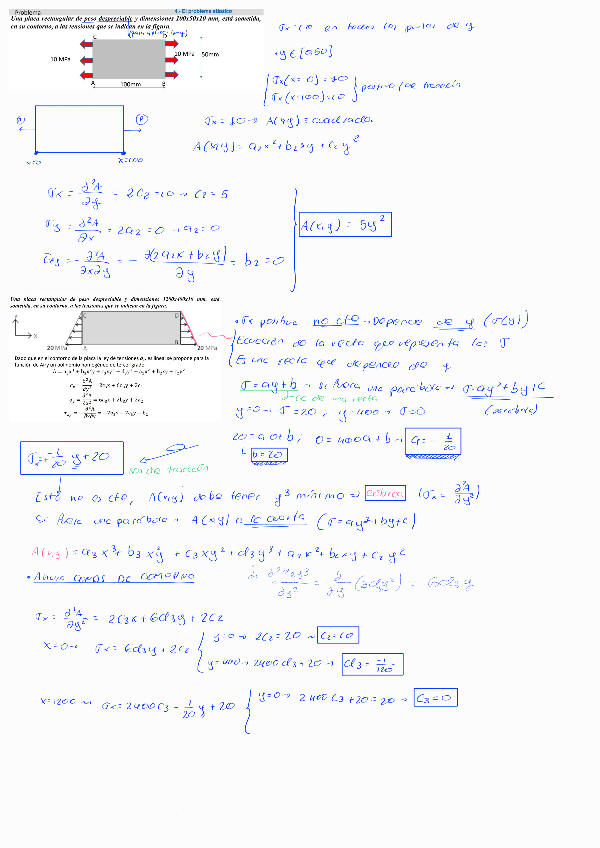 Problema
4.- El problema elástico
Una placa rectangular de peso despreciable y dimensiones 100x50x10 mm, está sometida,
en su contorno, a las tensiones que se indican en la figura.
C D
10 MPa 10 MPa 50mm
A B
100mm
σx = 10 en todos los puntos de y
y ∈ [0,50]
σx(x=0) = 10
σx(x=100) = 10
positivo (de tracción
x=0 x=100
σx = 10 → A(x,y) = cuadrado.
A(x,y) = a₂x² + b₂xy + c₂y²
σx = ∂²A/∂y = 2c₂ = 10 → c₂ = 5
σy = ∂²A/∂x = 2a₂ = 0 → a₂ = 0
τxy = - ∂²A/∂x∂y = - ∂(2a₂x + b₂y)/∂y = b₂ = 0
A(x,y) = 5y²
Una placa rectangular de peso despreciable y dimensiones 1200x400x10 mm, está
sometida, en su contorno, a las tensiones que se indican en la figura.
Y
X
C D
20 MPa A B 20 MPa
Dado que en el contorno de la placa la ley de tensiones σx, es lineal se propone para la
función de Airy un polinomio homogéneo de tercer grado
• σx positiva no cte → Depende de y (σ(y))
Ecuación de la recta que representa las σ
Es una recta que depende de y
σ = ay + b → si fuera una parábola → σ = ay² + by + c
(parábola)
y=0 → σ=20, y=400 → σ=0
20 = a·0 + b, 0 = 400a + b → a = - 1/20
b = 20
σx = -1/20 y + 20
son de tracción
Esto no es cte, A(x,y) debe tener y³ mínimo ⇒ cúbica (σx = ∂²A/∂y²)
Si fuera una parábola → A(x,y) a la cuarta (σ = ay² + by + c)
A(x,y) = a₃x³ + b₃x²y + c₃xy² + d₃y³ + a₂x² + b₂xy + c₂y²
σx = ∂²A/∂y² = 2c₃x + 6d₃y + 2c₂
x=0 → σx = 6d₃y + 2c₂
y=0 → 2c₂ = 20 → c₂ = 10
y=400 → 2400d₃ + 20 → d₃ = -1/120
x=1200 → σx = 2400c₃ - 1/20 y + 20
y=0 → 2400c₃ + 20 = 20 → c₃ = 0